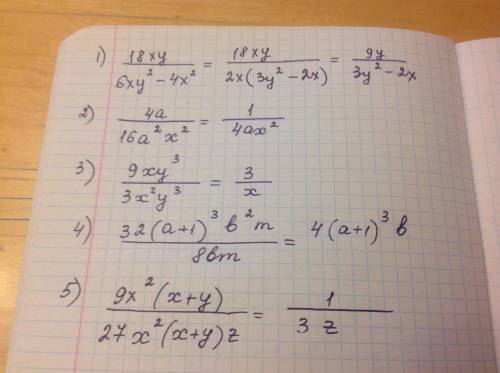 1) 18xy / (6xy² − 4x²) = 18xy / (2x(3y² − 2x)) = 9y / (3y² − 2x)
2) 4a / (16a²x²) = 1 / (4ax²)
3) 9xy³ / (3x²y³) = 3 / x
4) 32(a+1)³в²m / (8вm) = 4(a+1)³в
5) 9x²(x+y) / (27x²(x+y)z) = 1 / (3z)